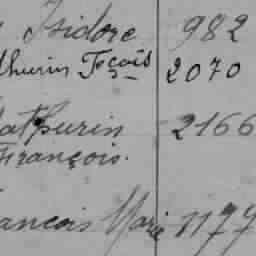 Isidore 982
thurin Fçois 2070
athurin 2166
François.
ancois Marie 1177